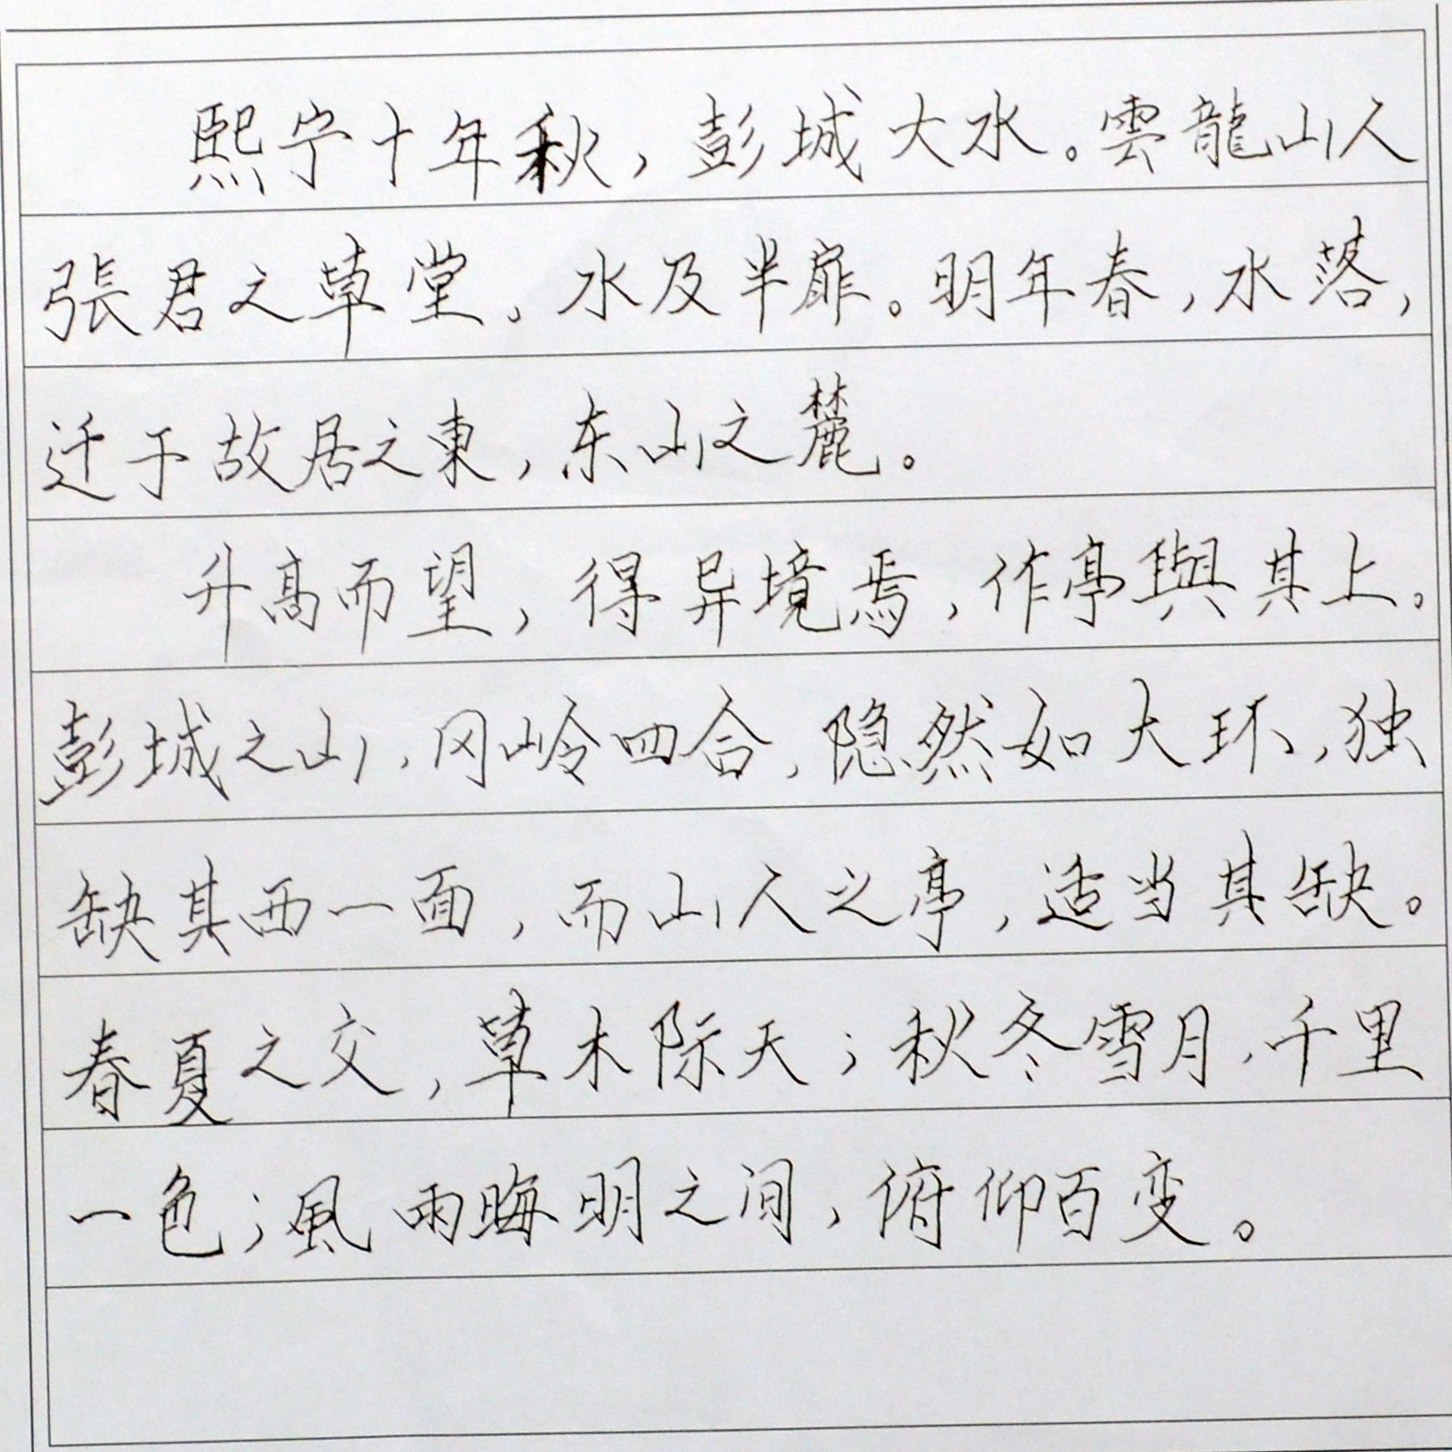 熙宁十年秋，彭城大水。雲龍山人
張君之草堂，水及半扉。明年春，水落，
迁于故居之東，东山之麓。
升高而望，得异境焉，作亭與其上。
彭城之山，冈岭四合，隐然如大环，独
缺其西一面，而山人之亭，适当其缺。
春夏之交，草木际天；秋冬雪月，千里
一色；風雨晦明之间，俯仰百变。